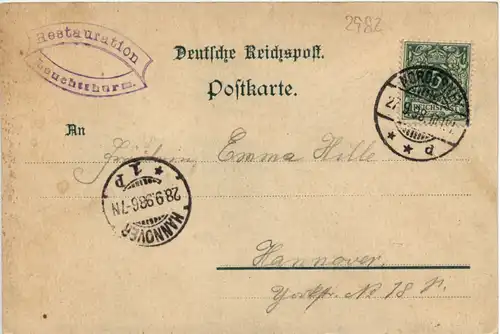 2982
Restauration
Leuchtthurm.
Deutsche Reichspost.
Postkarte.
NORDERNEY
27.9.98.
* * d
REICHSPOST
An
Fräulein Emma Hille
HANNOVER
28.9.98.6-7N
* 1 P
Hannover
Yorkstr. No 18 p.